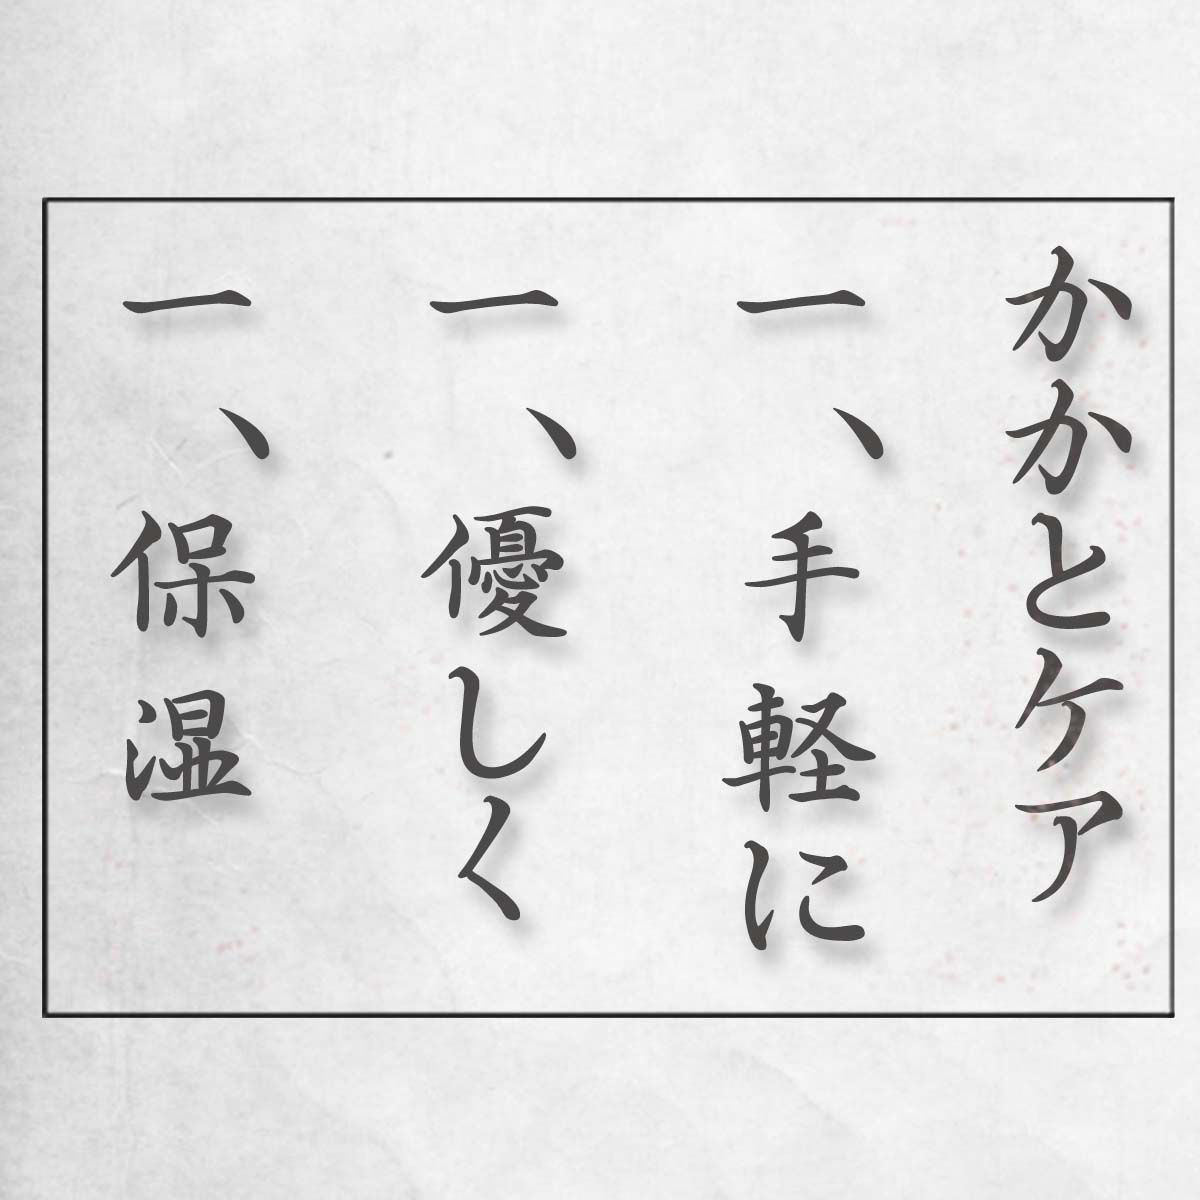 かかとケア
一、手軽に
一、優しく
一、保湿